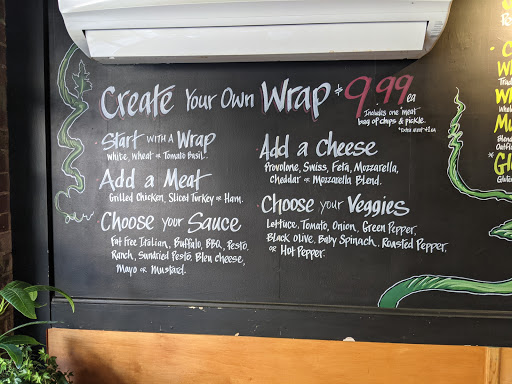 Create Your Own Wrap $9.99 ea
Includes one meat
bag of chips & pickle.
Start with a Wrap
White, Wheat or Tomato Basil.
Add a Meat
Grilled Chicken, Sliced Turkey or Ham.
Choose your Sauce
Fat Free Italian, Buffalo, BBQ, Pesto,
Ranch, Sundried Pesto, Bleu cheese,
Mayo or Mustard.
Add a Cheese
Provolone, Swiss, Feta, Mozzarella,
Cheddar or Mozzarella Blend.
Choose your Veggies
Lettuce, Tomato, Onion, Green Pepper,
Black Olive, Baby Spinach, Roasted Pepper,
or Hot Pepper.